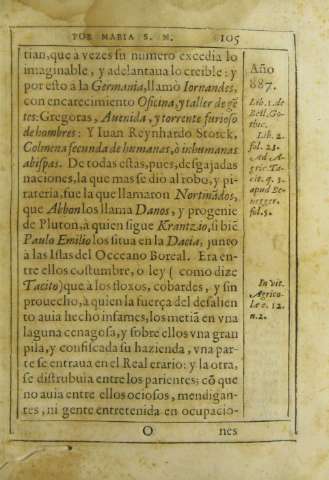 POR MARIA S. N. 105
tian, que a vezes su numero excedia lo
imaginable, y adelantaua lo creible: y
por esto a la Germania, llamò Iornandes,
con encarecimiento Oficina, y taller de gẽ
tes: Gregoras, Auenida, y torrente furioso
de hombres: Y Iuan Reynhardo Storck,
Colmena fecunda de humanas, ò inhumanas
abispas. De todas estas, pues, desgajadas
naciones, la que mas se dio al robo, y pi-
rateria, fue la que llamaron Nortmãdos,
que Abbon los llama Danos, y progenie
de Pluton, à quien sigue Krantzao, si biẽ
Paulo Emilio los situa en la Dacia, junto
à las Islas del Occeano Boreal. Era en-
tre ellos costumbre, o ley (como dize
Tacito) que à los floxos, cobardes, y sin
prouecho, à quien la fuerça del desalien
to auia hecho infames, los metiã en vna
laguna cenagosa, y sobre ellos vna gran
pila, y confiscada su hazienda, vna par-
te se entraua en el Real erario: y la otra,
se distrubuia entre los parientes; cõ que
no auia entre ellos ociosos, mendigan-
tes, ni gente entretenida en ocupacio-
O nes
Año
887.
Lib. 1. de
Bell. Go-
thic.
Lib. 2.
fol. 21.
Ad A-
gric. Ta-
cit. q. 1.
apud Be-
negger.
fol. 5.
In vit.
Agrico-
læ c. 12.
n. 2.